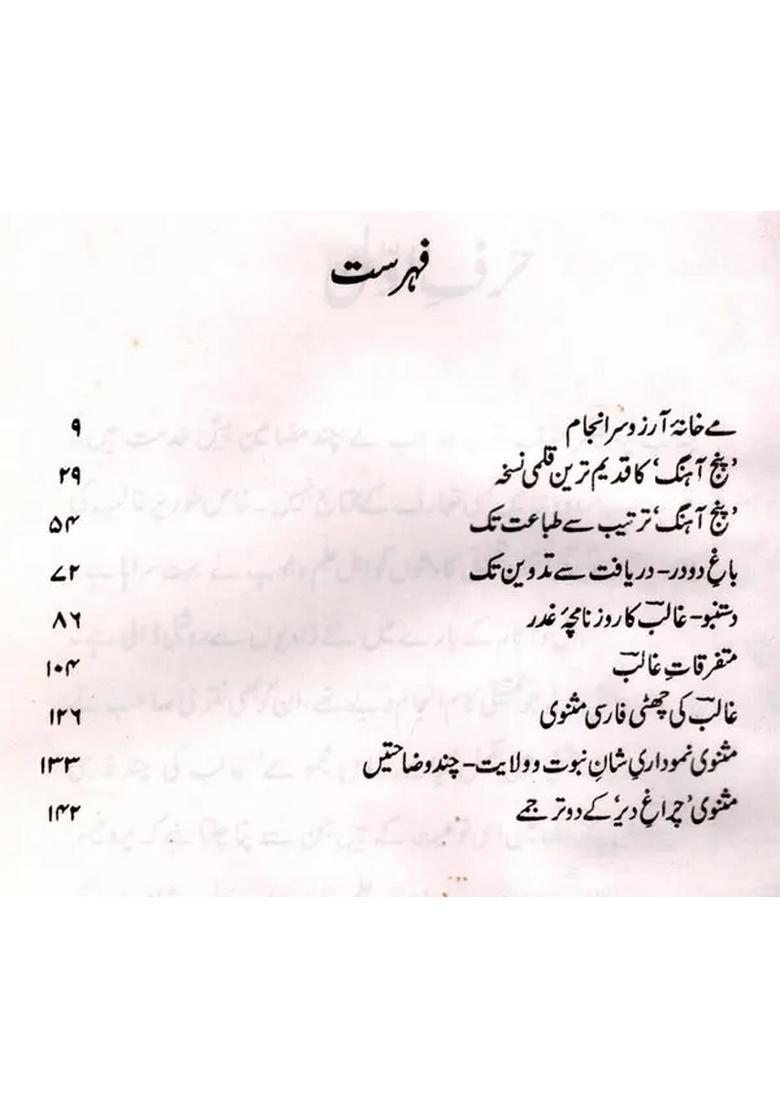 فہرست
مے خانۂ آرزو سرانجام ۹
’پنج آہنگ‘ کا قدیم ترین قلمی نسخہ ۲۹
’پنج آہنگ‘ ترتیب سے طباعت تک ۵۴
باغِ دودر - دریافت سے تدوین تک ۷۲
دستنبو - غالبؔ کا روزنامچۂ غدر ۸۶
متفرقاتِ غالبؔ ۱۰۴
غالبؔ کی چھٹی فارسی مثنوی ۱۲۶
مثنوی نموداریِ شانِ نبوت و ولایت - چند وضاحتیں ۱۳۳
مثنوی ’چراغِ دیر‘ کے دو ترجمے ۱۴۲